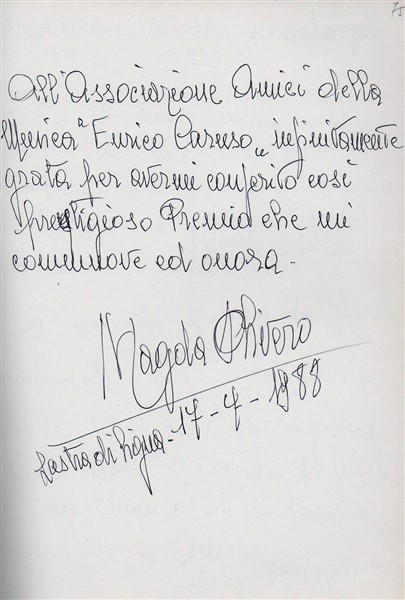 75
All'Associazione Amici della
Musica "Enrico Caruso" infinitamente
grata per avermi conferito così
prestigioso Premio che mi
commuove ed onora.
Magda Olivero
Lastra di Signa - 17 - 4 - 1988